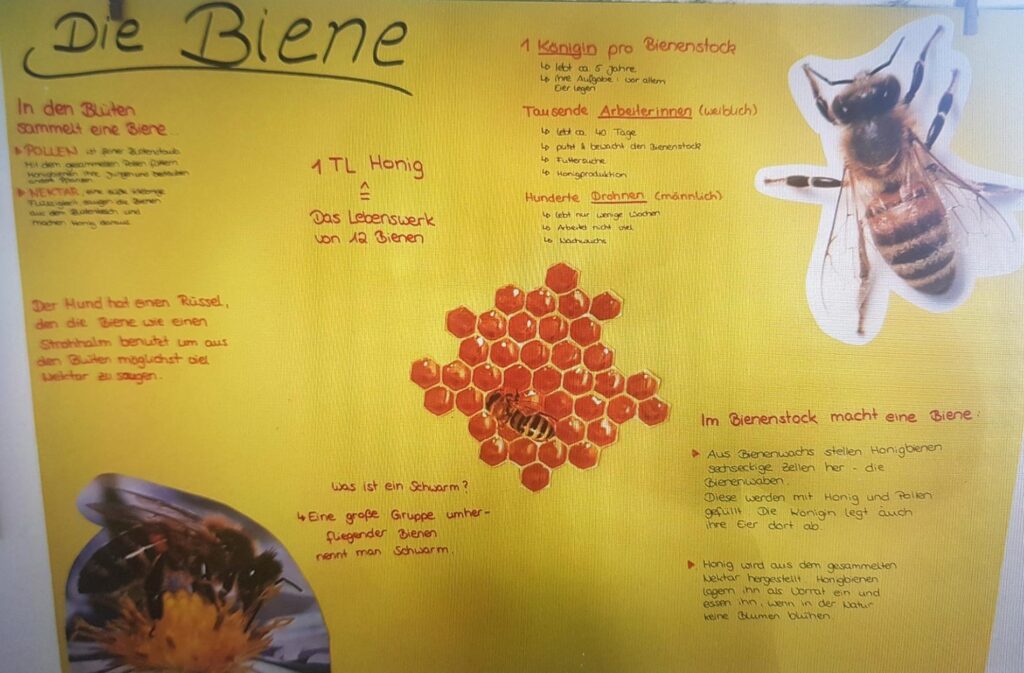 Die Biene
In den Blüten
sammelt eine Biene...
POLLEN ist feiner Blütenstaub.
Mit dem gesammelten Pollen füttern
Honigbienen ihre Jungen und bestäuben
andere Pflanzen.
NEKTAR, eine süße klebrige
Flüssigkeit saugen die Bienen
aus dem Blütenkelch und
machen Honig daraus.
Der Mund hat einen Rüssel,
den die Biene wie einen
Strohhalm benutzt um aus
den Blüten möglichst viel
Nektar zu saugen.
1 TL Honig
≙
Das Lebenswerk
von 12 Bienen
1 Königin pro Bienenstock
↳ lebt ca. 5 Jahre
↳ ihre Aufgabe: vor allem
Eier legen
Tausende Arbeiterinnen (weiblich)
↳ lebt ca. 40 Tage
↳ putzt & bewacht den Bienenstock
↳ Futtersuche
↳ Honigproduktion
Hunderte Drohnen (männlich)
↳ lebt nur wenige Wochen
↳ Arbeitet nicht viel
↳ Nachwuchs
Was ist ein Schwarm?
↳ Eine große Gruppe umher-
fliegender Bienen
nennt man Schwarm.
Im Bienenstock macht eine Biene:
Aus Bienenwachs stellen Honigbienen
sechseckige Zellen her - die
Bienenwaben.
Diese werden mit Honig und Pollen
gefüllt. Die Königin legt auch
ihre Eier dort ab.
Honig wird aus dem gesammelten
Nektar hergestellt. Honigbienen
lagern ihn als Vorrat ein und
essen ihn, wenn in der Natur
keine Blumen blühen.